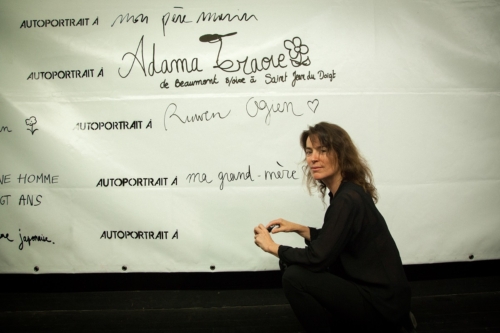 AUTOPORTRAIT À mon père marin
AUTOPORTRAIT À Adama Traore
de Beaumont s/oise à Saint Jean du Doigt
AUTOPORTRAIT À Ruwen Ogien
NE HOMME
GT ANS
AUTOPORTRAIT À ma grand-mère
japonaise.
AUTOPORTRAIT À